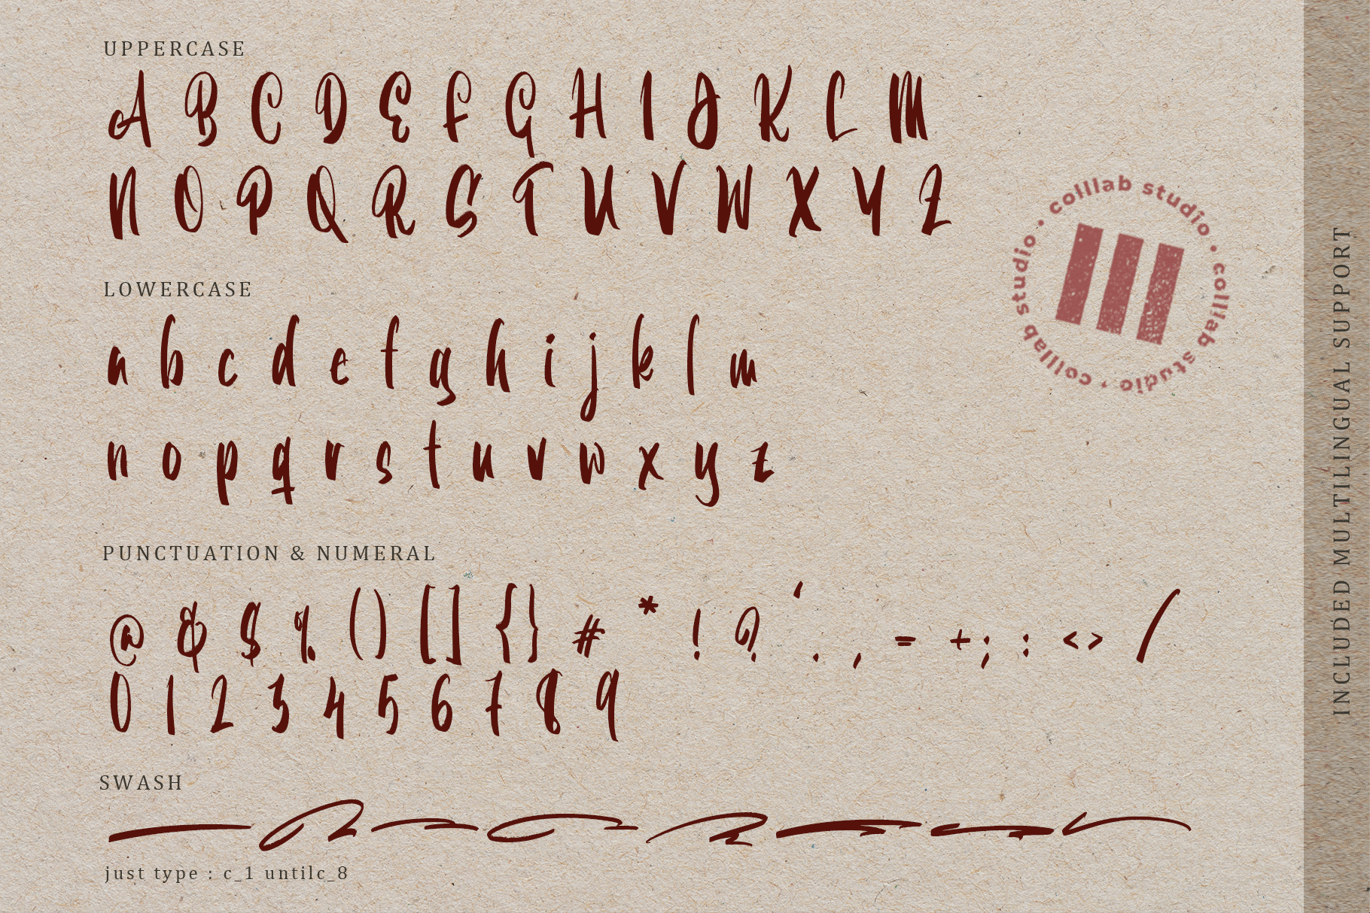 UPPERCASE
A B C D E F G H I J K L M
N O P Q R S T U V W X Y Z
LOWERCASE
a b c d e f g h i j k l m
n o p q r s t u v w x y z
PUNCTUATION & NUMERAL
@ & $ % ( ) [ ] { } # * ! ? ' . , = + ; : < > /
0 1 2 3 4 5 6 7 8 9
SWASH
just type : c_1 untilc_8
colllab studio • colllab studio • colllab studio •
INCLUDED MULTILINGUAL SUPPORT